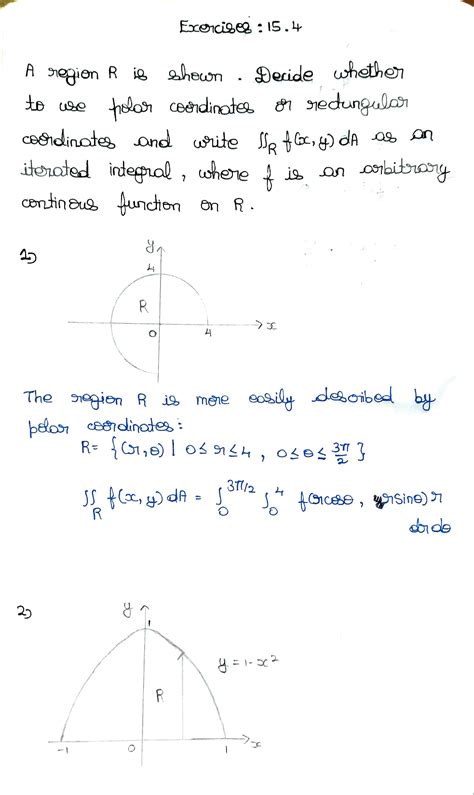 Exercises : 15.4
A region R is shown. Decide whether
to use polar coordinates or rectungular
coordinates and write ∬_R f(x,y) dA as an
iterated integral, where f is an arbitrary
continous function on R.
1)
y
4
R
0
4
x
The region R is more easily described by
polar coordinates:
R= {(r,θ) | 0≤r≤4 , 0≤θ≤ 3π/2 }
∬_R f(x,y) dA = ∫_0^{3π/2} ∫_0^4 f(rcosθ, rsinθ) r
drdθ
2)
y
1
y = 1-x²
R
-1
0
1
x